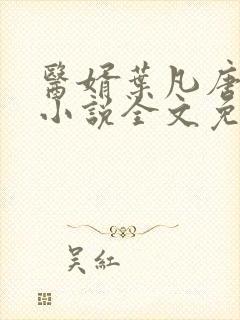 醫婿葉凡唐
小說全文免
吳紅